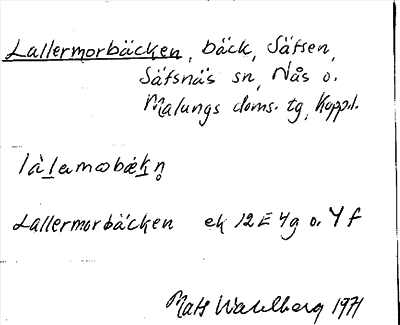 Lallermorbäcken, bäck, Säfsen,
Säfsnäs sn, Nås o.
Malungs doms. tg, Kopp.l.
Lallermorbäcken ek 12E 4g o. 4f
Mats Wahlberg 1971